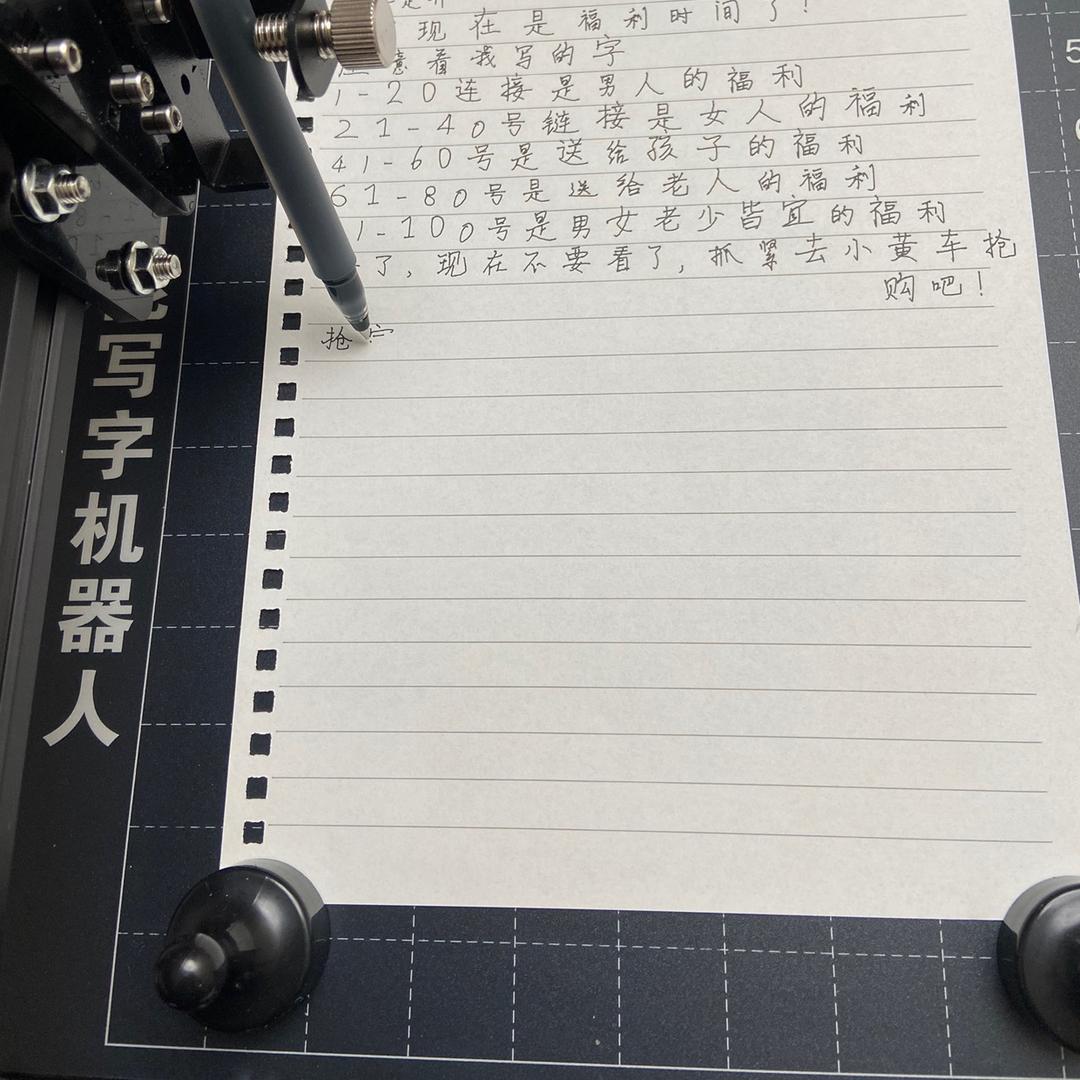 现在是福利时间了!
意看我写的字
1-20连接是男人的福利
21-40号链接是女人的福利
41-60号是送给孩子的福利
61-80号是送给老人的福利
1-100号是男女老少皆宜的福利
了,现在不要看了,抓紧去小黄车抢
购吧!
抢
写字机器人
5